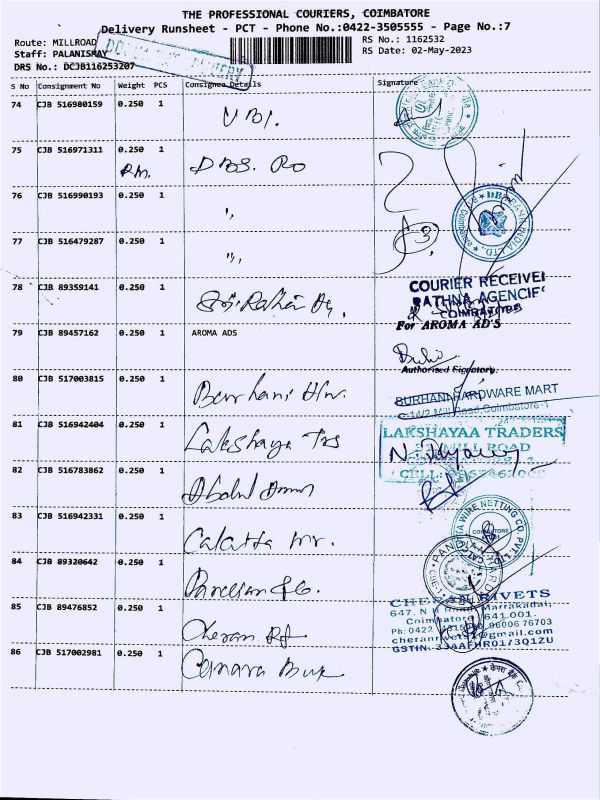 THE PROFESSIONAL COURIERS, COIMBATORE
Delivery Runsheet - PCT - Phone No.:0422-3505555 - Page No.:7
Route: MILLROAD
RS No.: 1162532
Staff: PALANISMAY
RS Date: 02-May-2023
DRS No.: DCJB116253207
DELIVERY
S No Consignment No Weight PCS Consignee Details Signature
74 CJB 516980159 0.250 1 UBI.
75 CJB 516971311 0.250 1 DBS. RO
RM.
76 CJB 516990193 0.250 1 "
77 CJB 516479287 0.250 1 "
78 CJB 89359141 0.250 1
COURIER RECEIVED
RATHNA AGENCIES
COIMBATORE
79 CJB 89457162 0.250 1 AROMA ADS
For AROMA AD'S
Authorised Signatory.
80 CJB 517003815 0.250 1 Burhani
BURHANI HARDWARE MART
Mill Road Coimbatore-1
81 CJB 516942404 0.250 1 Lakshaya Trs
LAKSHAYAA TRADERS
MILL ROAD
CELL:
82 CJB 516783862 0.250 1 Abdul
83 CJB 516942331 0.250 1 Calcutta
CALCUTTA WIRE NETTING CO. PVT. LTD
COIMBATORE
84 CJB 89320642 0.250 1 & Co.
85 CJB 89476852 0.250 1 Cheran
CHERAN RIVETS
647. N H Road, Marrakadai,
Coimbatore 641.001.
Ph: 0422 96006 76703
cheranrivets@gmail.com
GSTIN:
86 CJB 517002981 0.250 1 Canara Bnk